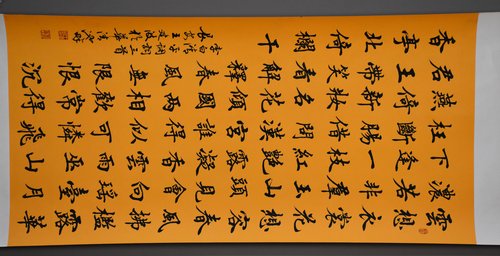 雲想衣裳花想容春風拂檻露華
濃若非羣玉山頭見會向瑤臺月
下逢一枝紅艷露凝香雲雨巫山
枉斷腸借問漢宮誰得似可憐飛
燕倚新妝名花傾國兩相歡常得
君王帶笑看解釋春風無限恨沉
香亭北倚欄干
李白清平調詞三首